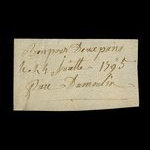 Bon pour Deux pains
le 24 Juillet 1795
Dumoulin